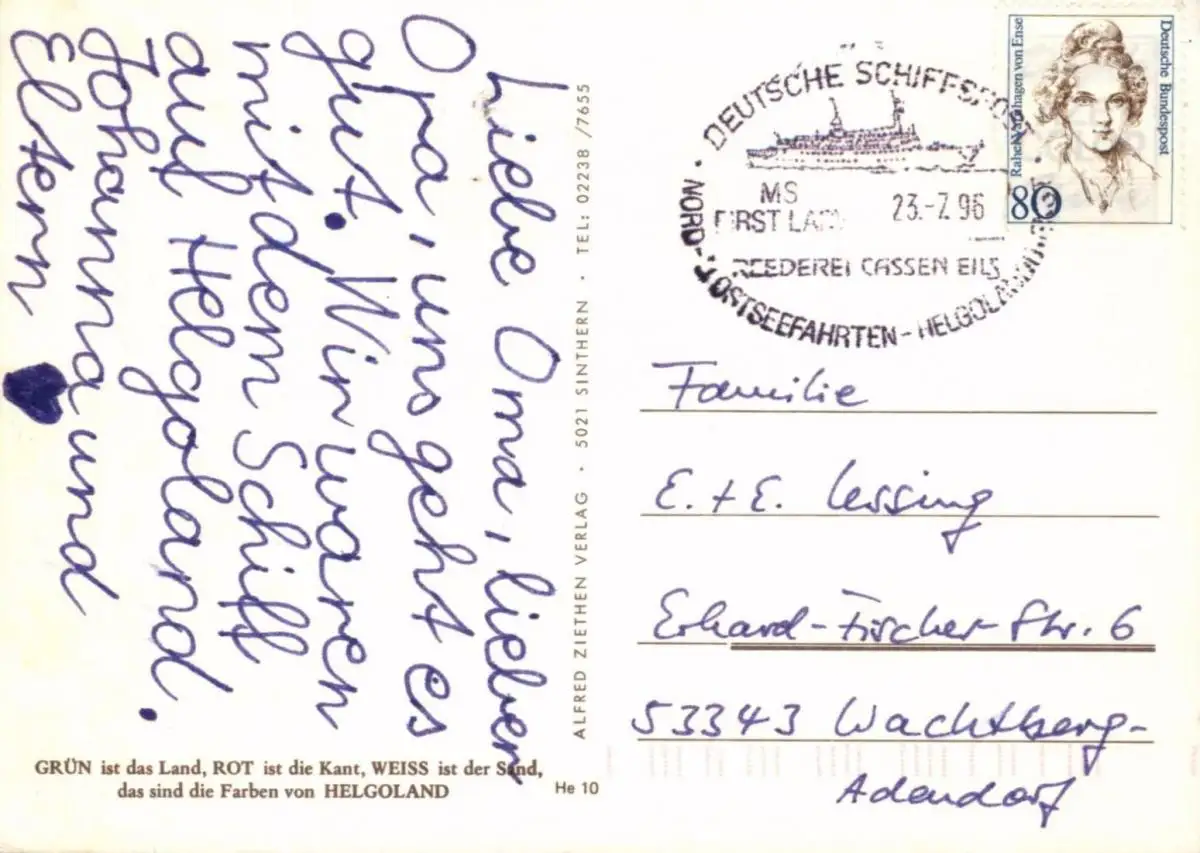 Liebe Oma, lieber
Opa, uns geht es
gut. Wir waren
mit dem Schiff
auf Helgoland.
Johanna und
Eltern
GRÜN ist das Land, ROT ist die Kant, WEISS ist der Sand,
das sind die Farben von HELGOLAND
He 10
ALFRED ZIETHEN VERLAG · 5021 SINTHERN · TEL: 02238 /7655
DEUTSCHE SCHIFFSPOST
MS
FIRST LADY
23.-7.96
REEDEREI CASSEN EILS
NORD- + OSTSEEFAHRTEN - HELGOLAND
Rahel Varnhagen von Ense
Deutsche Bundespost
80
Familie
E. + E. Lessing
Erhard-Fischer-Str. 6
53343 Wachtberg-
Adendorf